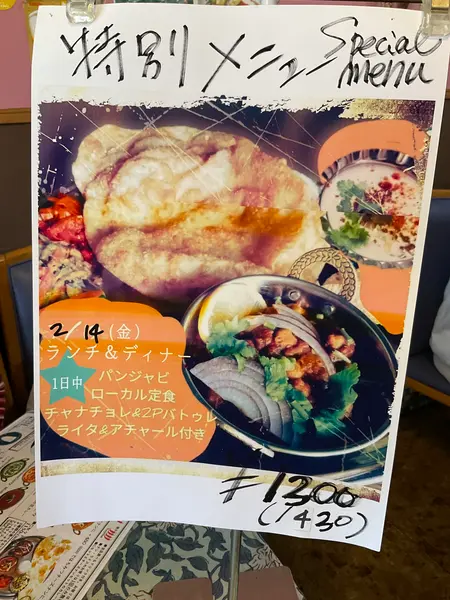 特別メニュー Special menu
2/14(金)
ランチ&ディナー
1日中
パンジャビ
ローカル定食
チャナチョレ&2Pバトゥレ
ライタ&アチャール付き
¥1300
(1430)